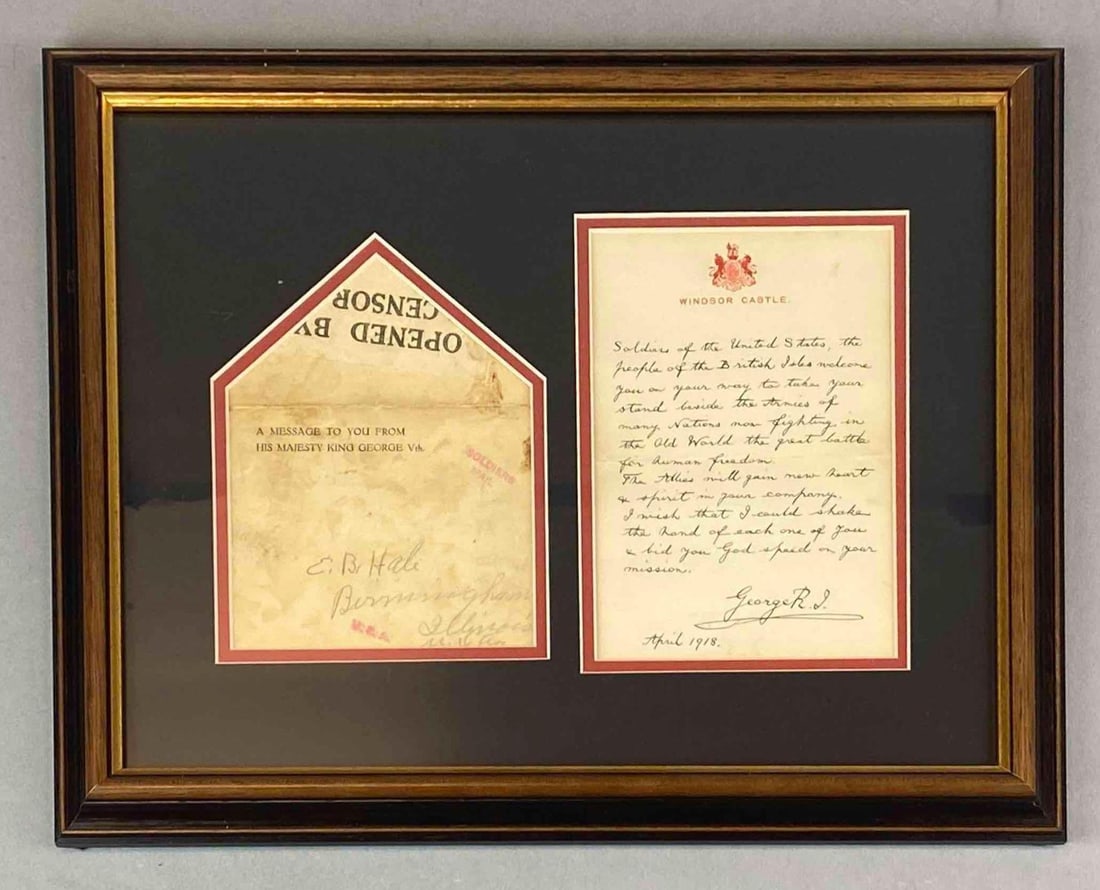 OPENED BY
CENSOR
A MESSAGE TO YOU FROM
HIS MAJESTY KING GEORGE Vth.
SOLDIERS
E. B. Hale
Birmingham
Illinois
U.S.A.
WINDSOR CASTLE.
Soldiers of the United States, the
people of the British Isles welcome
you on your way to take your
stand beside the Armies of
many Nations now fighting in
the Old World the great battle
for human freedom.
The Allies will gain new heart
& spirit in your company.
I wish that I could shake
the hand of each one of you
& bid you God speed on your
mission.
George R.I.
April 1918.